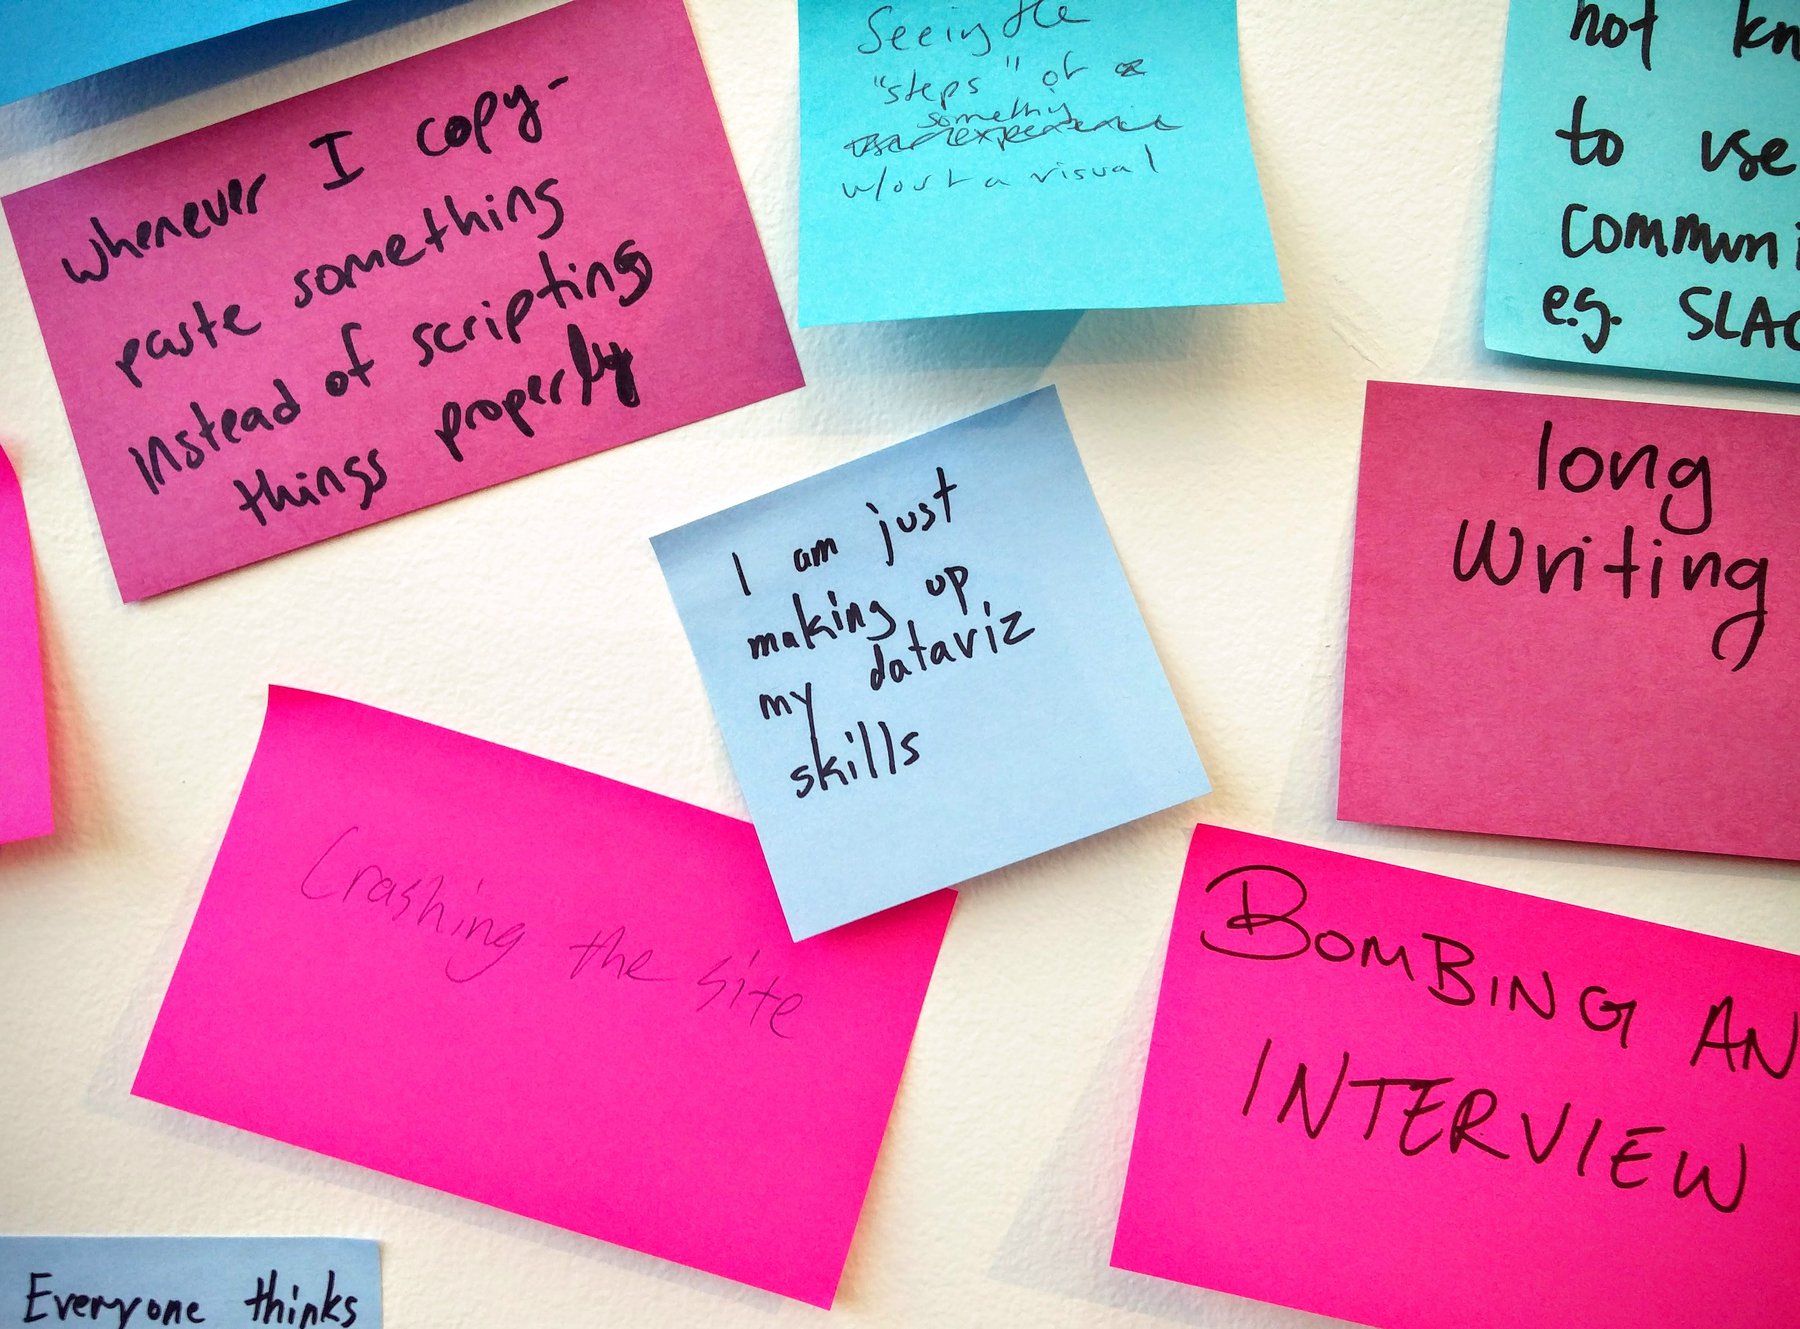 whenever I copy-
paste something
instead of scripting
things properly
Seeing the
"steps" of
something
w/out a visual
not kn
to use
communi
e.g. SLAC
I am just
making up
my dataviz
skills
long
writing
Crashing the site
BOMBING AN
INTERVIEW
Everyone thinks